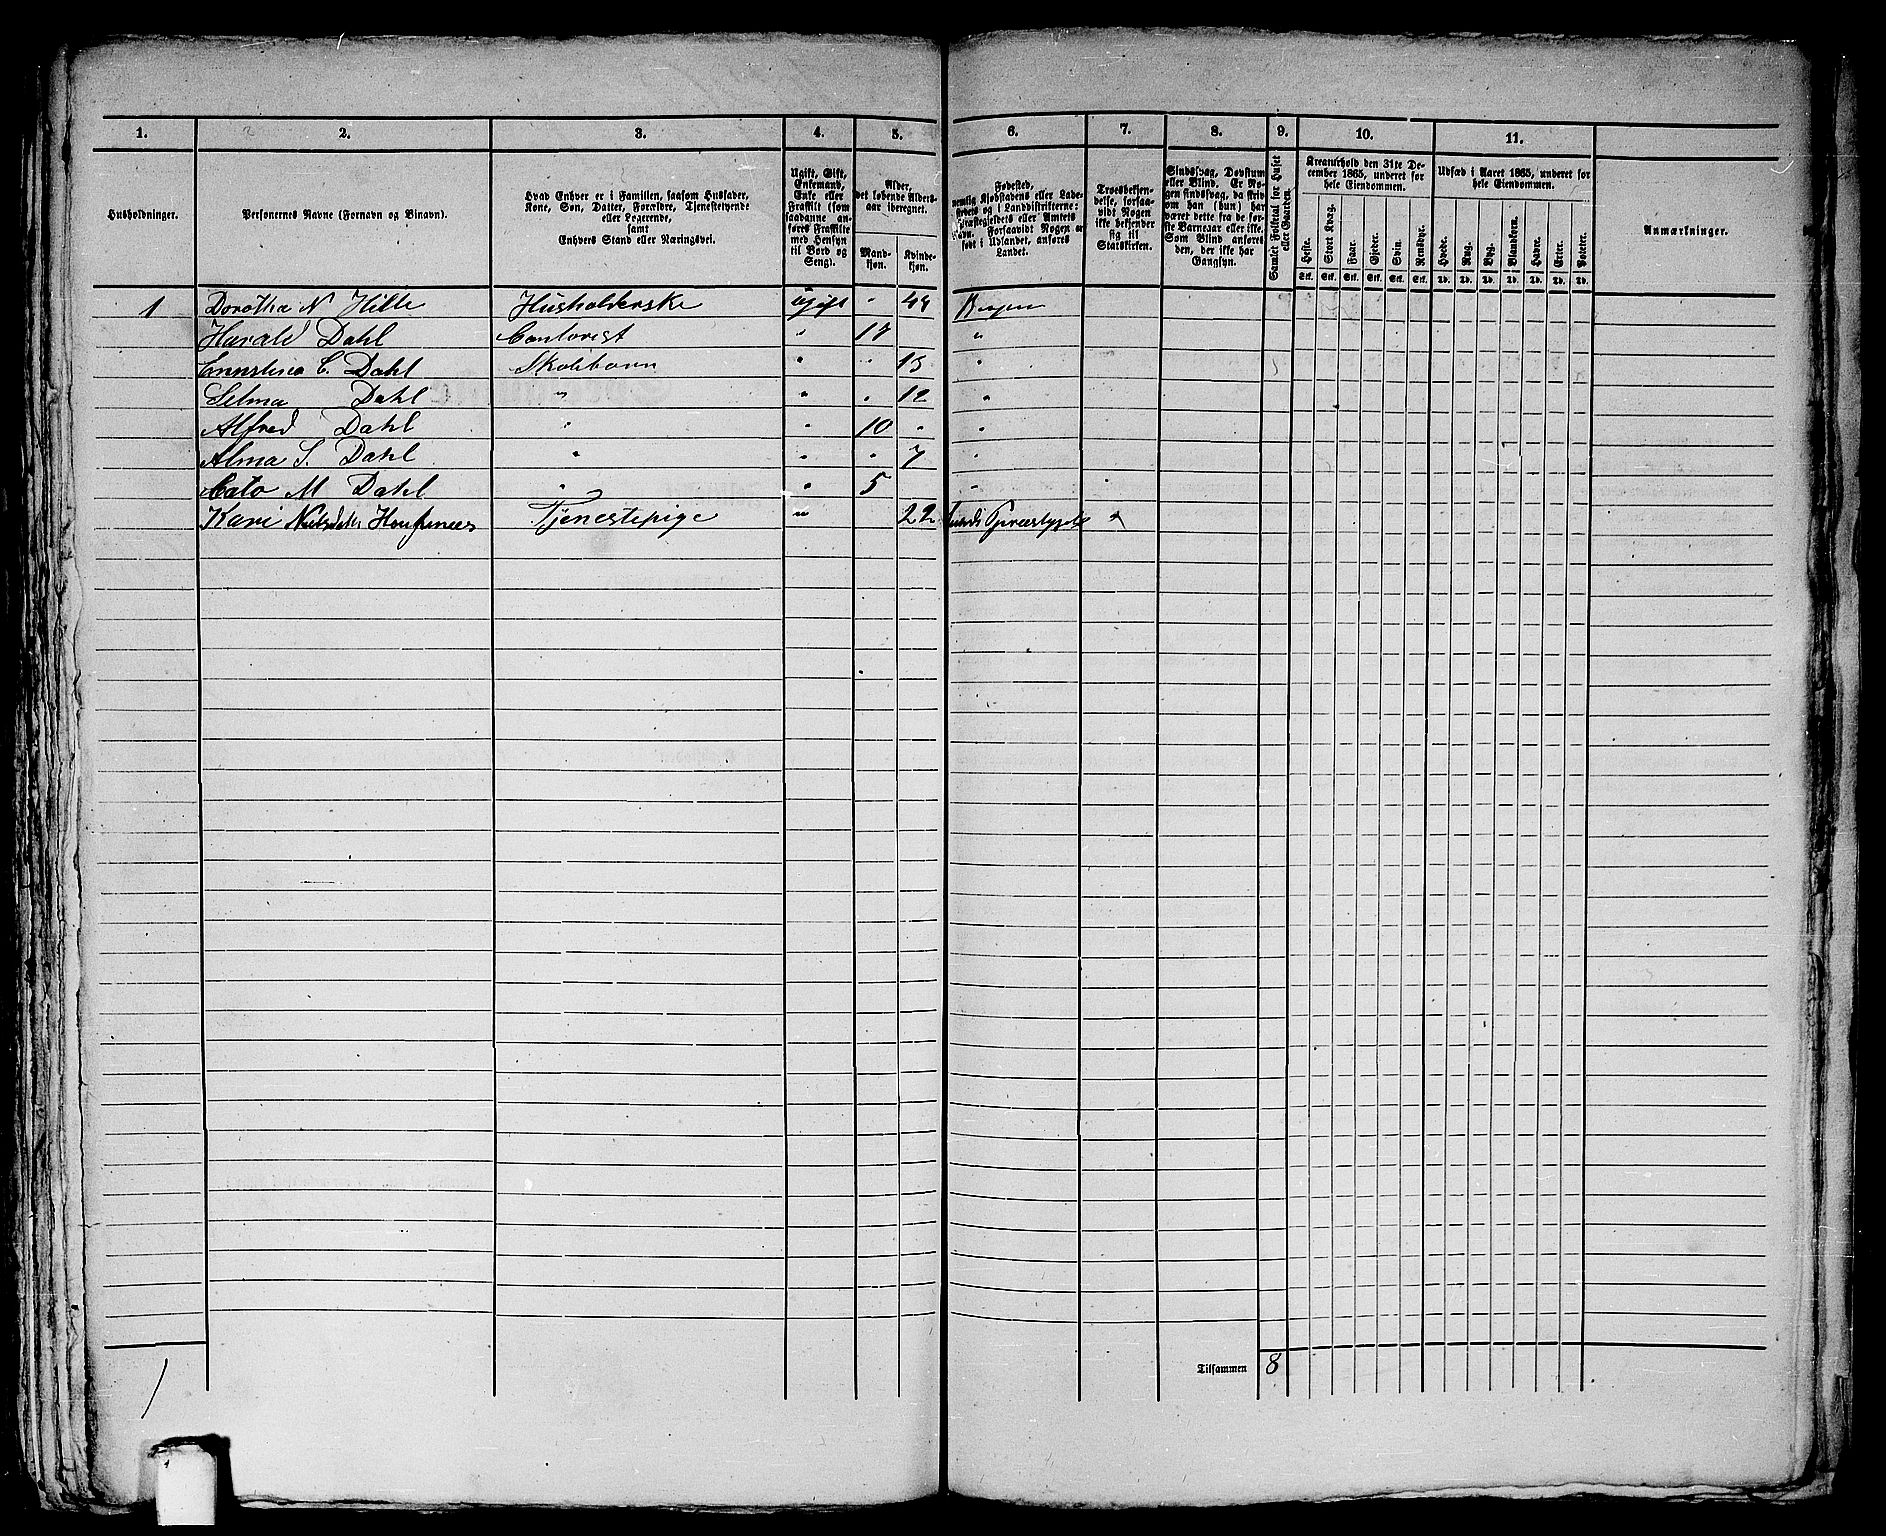 1. 2. 3. 4. 5. 6. 7. 8. 9. 10. 11.
Husholdninger.
Personernes Navne (Fornavn og Binavn).
Hvad Enhver er i Familien, saasom Husfader,
Kone, Søn, Datter, Forældre, Tjenestetyende
eller Logerende,
samt
Enhvers Stand eller Næringsvei.
Ugift, Gift,
Enkemand,
Enke eller
Fraskilt (som
saadanne an-
føres Fraskilte
med Hensyn
til Bord og
Seng).
Alder,
det løbende Alders-
aar iberegnet.
Mand-
kjøn.
Kvinde-
kjøn.
Fødested,
nemlig Kjøbstadens eller Lade-
stedets og i Landdistrikterne:
Præstegjeldets eller Amtets
Navn. Forsaavidt Nogen er
født i Udlandet, anføres
Landet.
Troesbekjen-
delse, forsaa-
vidt Nogen
ikke bekjender
sig til
Statskirken.
Sindssvag, Døvstum
eller Blind. Er No-
gen sindssvag, da skriv
om han (hun) har
været dette fra de før-
ste Barneaar eller ikke.
Som Blind anføres
den, der ikke har
Gangsyn.
Samlet Folketal for Huset
eller Gaarden.
Kreaturhold den 31te De-
cember 1865, underet for
hele Eiendommen.
Heste. Stort Kvæg. Faar. Gjeder. Svin. Rensdyr.
Stk. Stk. Stk. Stk. Stk. Stk.
Udsæd i Aaret 1865, underet for
hele Eiendommen.
Hvede. Rug. Byg. Blandkorn. Havre. Erter. Poteter.
Td. Td. Td. Td. Td. Td. Td.
Anmærkninger.
1 Dorothea N Hille Husholderske Ugift " 44 Bergen
Harald Dahl Contorist " 17 "
Ernestina C. Dahl Skolebarn " " 15 "
Selma Dahl " " " 12 "
Alfred Dahl " " 10 " "
Alma S. Dahl " " " 7 "
Cato M Dahl " " 5 "
Kari Nielsdtr Tjenestepige " 22 Præstegjeld
Tilsammen 8
1